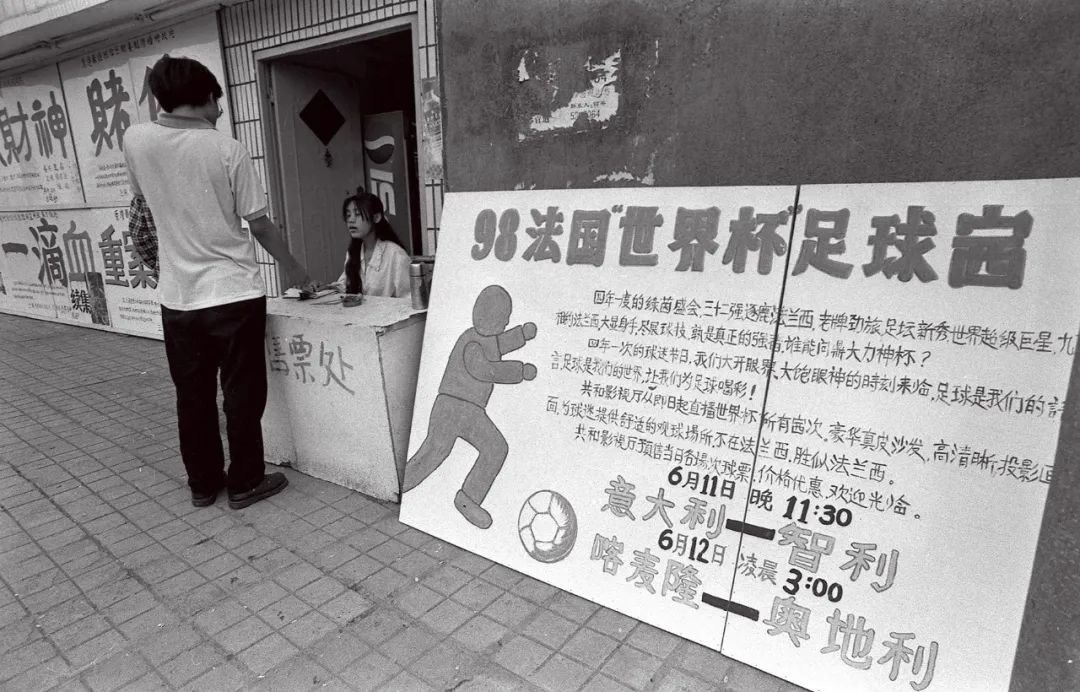 財神
賭
一滴血
续集
重案
售票处
98法国"世界杯"足球
四年一度的绿茵盛会,三十二强逐鹿法兰西,老牌劲旅,足坛新秀,世界超级巨星,九
相约法兰西大显身手,尽展球技,孰是真正的强者,谁能问鼎大力神杯?
四年一次的球迷节日,我们大开眼界,大饱眼神的時刻来临,足球是我们的語
言,足球是我们的世界,让我们为足球喝彩!
共和影视厅从即日起直播世界杯所有次,豪华真皮沙发,高清晰,投影画
面,为球迷提供舒适的观球场所,不在法兰西,胜似法兰西。
共和影视厅预售当日各場次球票,价格优惠,欢迎光临。
6月11日 晚 11:30
意大利—智利
6月12日 凌晨 3:00
喀麦隆—奥地利